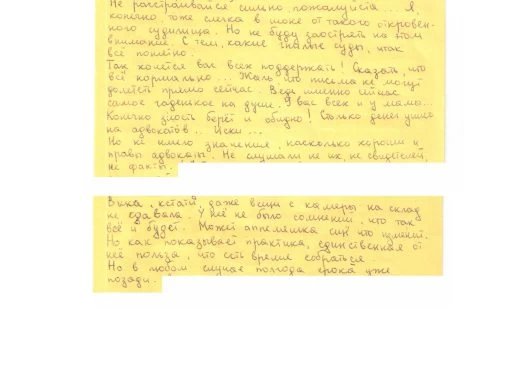 Не расстраивайся сильно, пожалуйста... Я,
конечно, тоже слегка в шоке от такого откровен-
ного судилища. Но не буду заострять на этом
внимание. С тем, какие гнилые суды, итак
всё понятно.
Так хочется вас всех поддержать! Сказать, что
всё нормально... Жаль, что письма не могут
долететь прямо сейчас. Ведь именно сейчас
самое гаденькое на душе. У вас всех и у мамы...
Конечно злость берёт и обидно! Столько денег ушло
на адвокатов... Иски...
Но не имело значения, насколько хороши и
правы адвокаты. Не слушали не их, не свидетелей,
не факты.
Вика, кстати, даже вещи с камеры на склад
не сдавала. У неё не было сомнений, что так
всё и будет. Может апелляшка ещё что изменит.
Но как показывает практика, единственная от
неё польза, что есть время собраться
Но в любом случае полгода срока уже
позади.